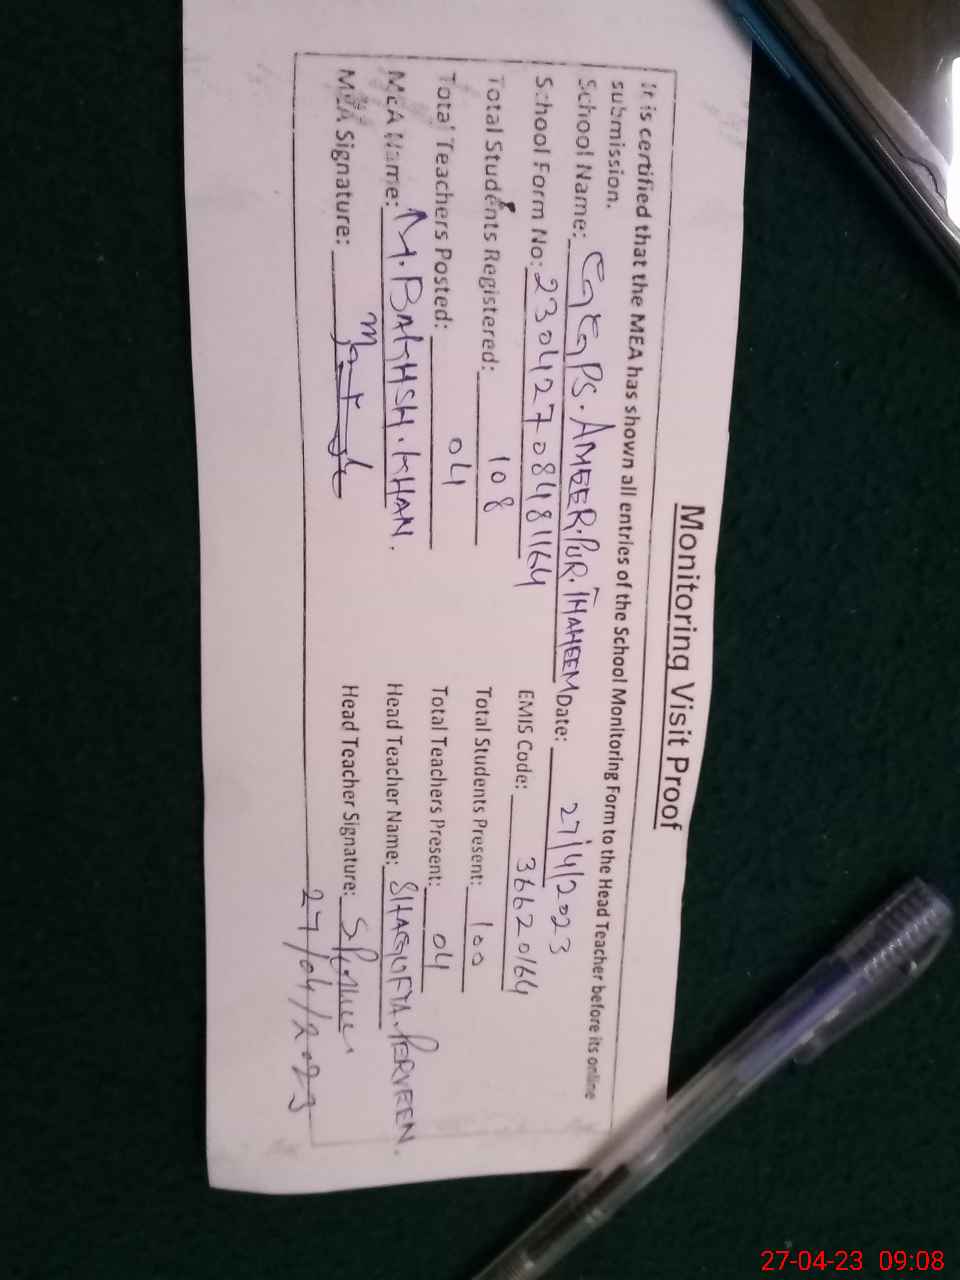 Monitoring Visit Proof
It is certified that the MEA has shown all entries of the School Monitoring Form to the Head Teacher before its online
submission.
School Name: GGPS. AMEER. PUR. THAHEEM Date: 27/4/2023
School Form No: 23042708481164 EMIS Code: 36620164
Total Students Registered: 108 Total Students Present: 100
Total Teachers Posted: 04 Total Teachers Present: 04
MEA Name: M. BAKHSH. KHAN. Head Teacher Name: SHAGUFTA. PERVEEN.
MEA Signature: Head Teacher Signature:
27/04/2023
27-04-23 09:08